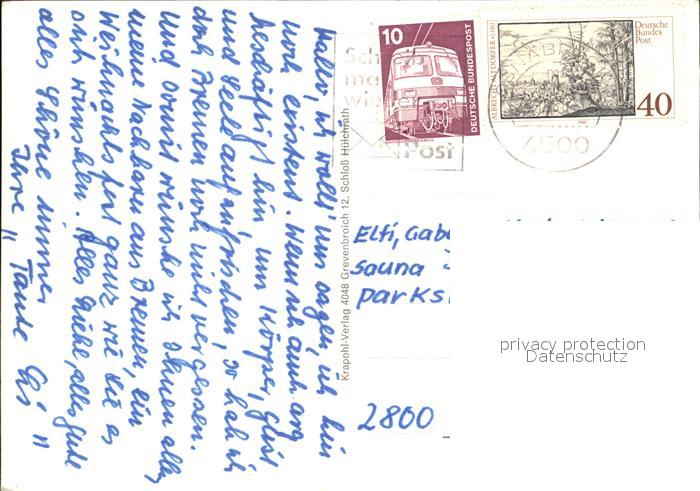 Hallo, ich wollt' nur sagen, ich bin
noch einsam. Wenn ich auch arg
beschäftigt bin, um Körper, Geist
und Seele aufzufrischen, so hab ich
doch Bremen noch nicht vergessen.
Und so wünsche ich Ihnen allen,
meine Nachbarn aus Bremen, ein
Weihnachtsfest ganz wie Sie es
sich wünschen. Alles Liebe, alles Gute
alles Schöne immer
Ihre "Tante "
Krapohl-Verlag 4048 Grevenbroich 12, Schloß Hülchrath
10
DEUTSCHE BUNDESPOST
ALBRECHT ALTDORFER
Deutsche
Bundes
Post
40
1980
Sch
ma
wie
Post
4500
Elfi, Gab
Sauna
Parks
privacy protection
Datenschutz
2800